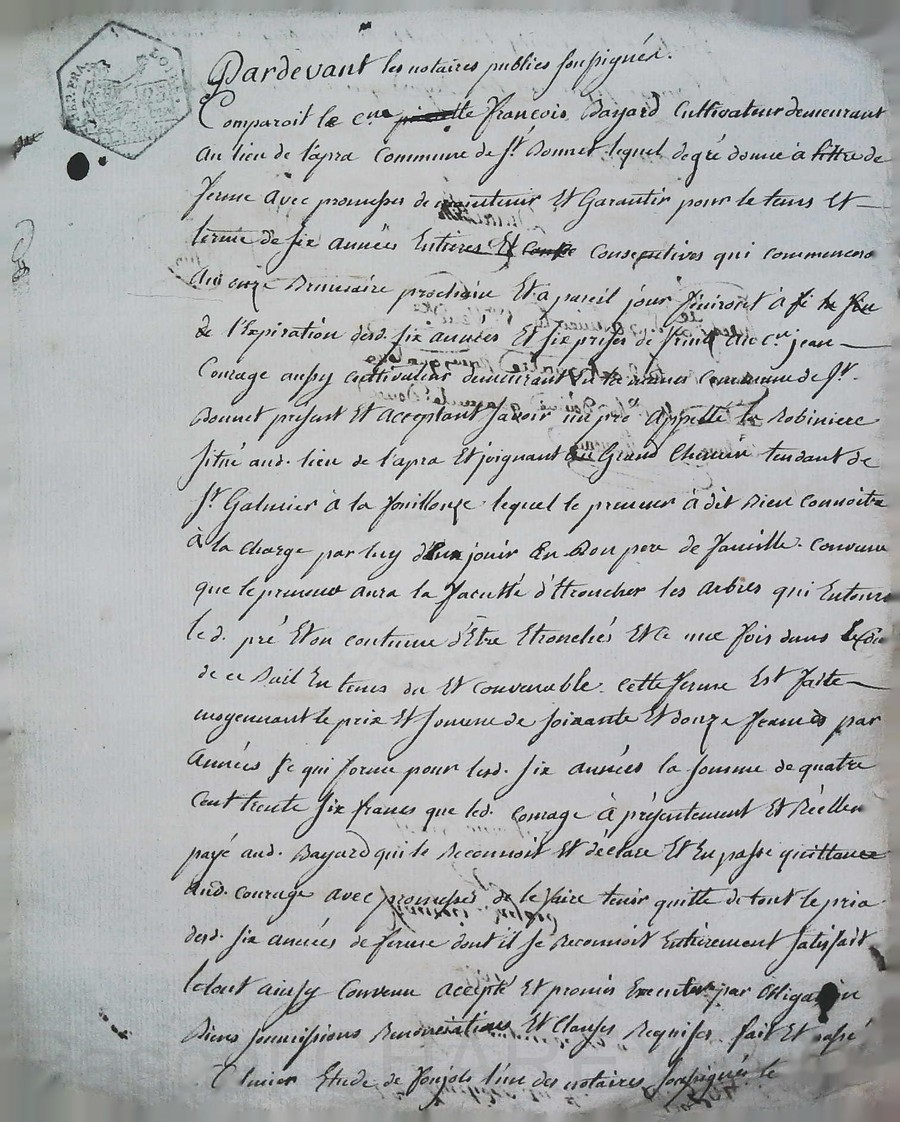 Pardevant les notaires publics soussignés.
Comparoit le c.en François Bayard Cultivateur demeurant
au lieu de l'apra Commune de S.t Bonnet lequel de gré donne à tittre de
ferme avec promesses de maintenir Et Garantir pour le tems Et
terme de six années Entieres Et Consecutives qui commencera
au onze Brumaire prochain Et a pareil jour finiront à
de l'Expiration desd. six années Et six prises de fruits au c.en jean
Courage aussy cultivateur demeurant Commune de S.t
Bonnet présent Et acceptant savoir un pré Appellé la Robiniere
situé aud. lieu de l'apra Et joignant au Grand Chemin tendant de
S.t Galmier à la fouillouze lequel le preneur à dit Bien connoitre
à la charge par luy d'en jouir En Bon pere de famille. Convenu
que le preneur aura la faculté d'Etroncher les arbres qui Entoure
led. pré Et on coutume d'Etre Etronchés Et ce une fois dans
de ce Bail En tems du Et convenable. cette ferme Est faite
moyennant le prix Et somme de soixante Et douze francs par
Années Se qui forme pour lesd. six années la somme de quatre
Cent trente six francs que led. Courage à présentement Et Réellem
payé aud. Bayard qui le Reconnoit Et déclare Et En passe quittance
aud. Courage avec promesses de le faire tenir quitte de tout le prix
desd. six années de ferme dont il se Reconnoit Entierement satisfait
le tout ainsy Convenu accepté Et promis Executer par Obligation
Biens soumissions Renonciations Et Clauses Requises. fait Et passé
Etude de l'un des notaires soussignés le